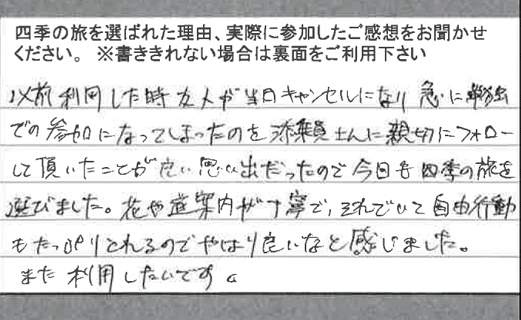 四季の旅を選ばれた理由、実際に参加したご感想をお聞かせ
ください。 ※書ききれない場合は裏面をご利用下さい
以前利用した時友人が当日キャンセルになり 急に
での参加になってしまったのを添乗員さんに親切にフォロー
して頂いたことが良い思い出だったので今回も四季の旅を
選びました。花や道案内が丁寧で、それでいて自由行動
もたっぷりとれるのでやはり良いなと感じました。
また利用したいです。